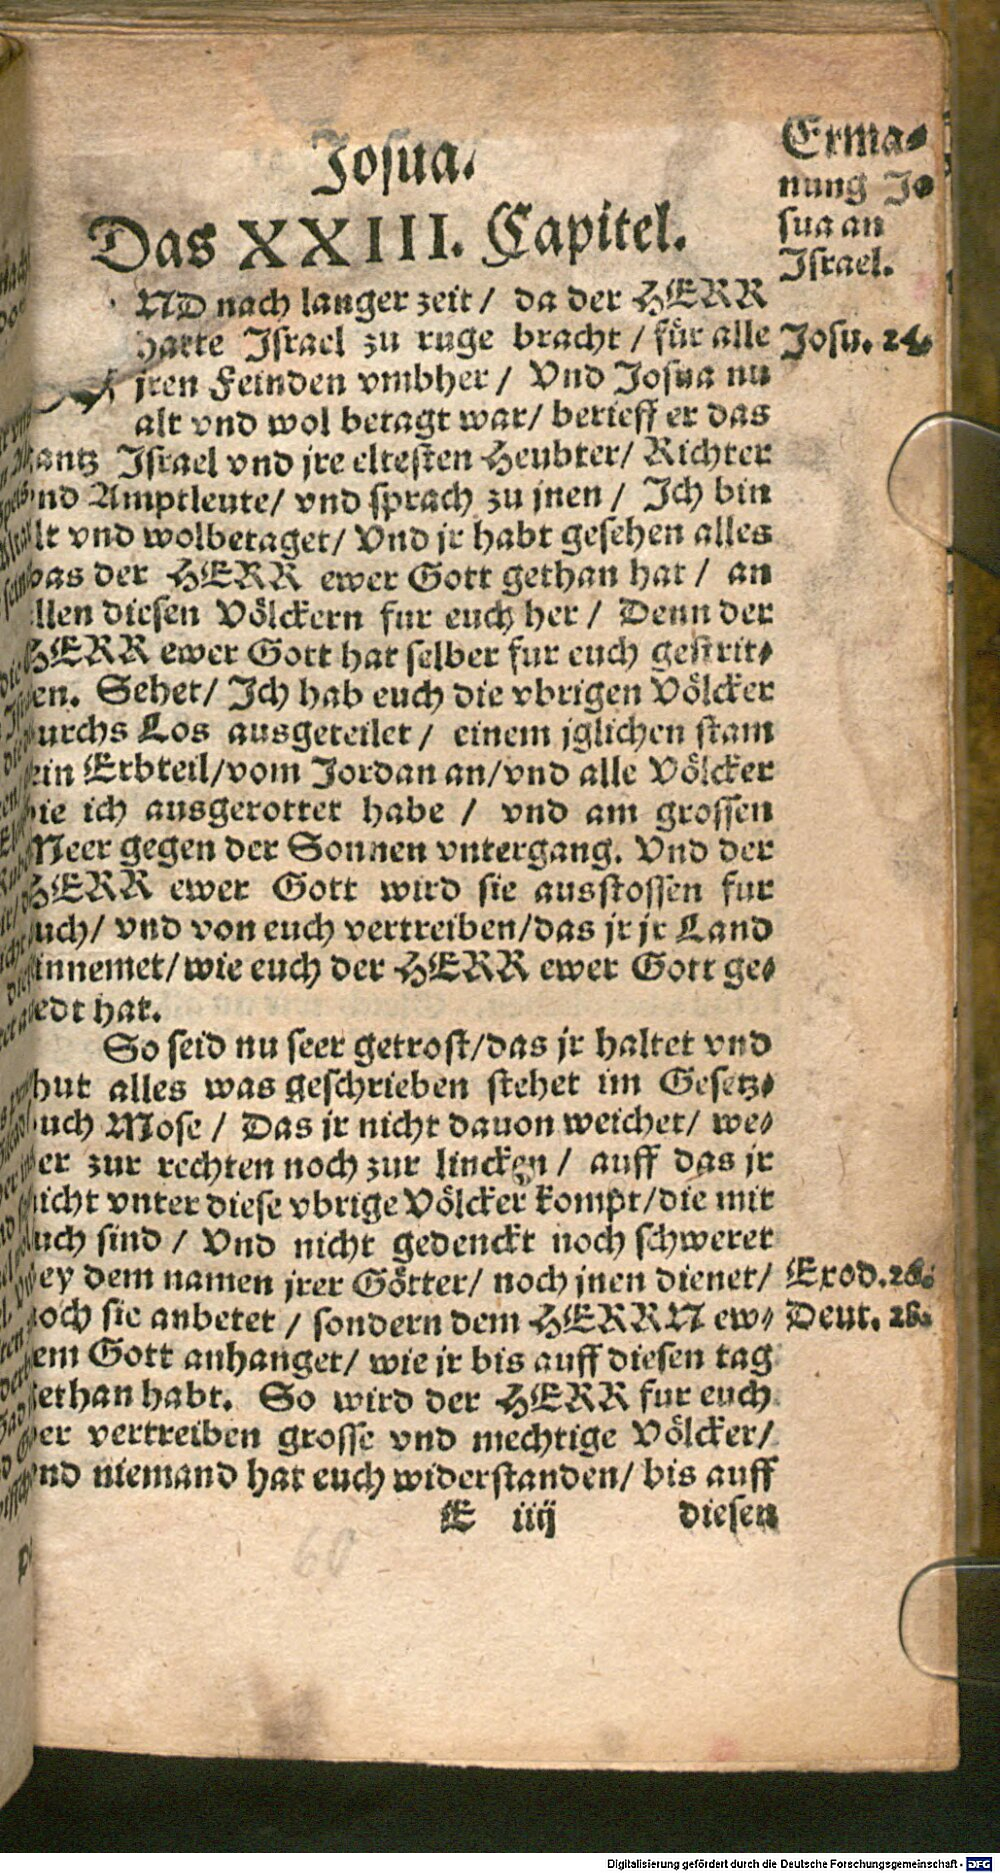 Josua.
Das XXIII. Capitel.
Erma-
nung Jo
sua an
Israel.
ND nach langer zeit / da der HERR
hatte Israel zu ruge bracht / für alle
Josu. 24.
jren Feinden vmbher / Vnd Josua nu
alt vnd wol betagt war / berieff er das
antz Israel vnd jre eltesten Heubter / Richter
nd Amptleute / vnd sprach zu jnen / Ich bin
lt vnd wolbetaget / Vnd jr habt gesehen alles
as der HERR ewer Gott gethan hat / an
llen diesen Völckern fur euch her / Denn der
HERR ewer Gott hat selber fur euch gestrit-
en. Sehet / Ich hab euch die vbrigen Völcker
urchs Los ausgeteilet / einem jglichen stam
ein Erbteil / vom Jordan an / vnd alle Völcker
ie ich ausgerottet habe / vnd am grossen
Meer gegen der Sonnen vntergang. Vnd der
HERR ewer Gott wird sie ausstossen fur
uch / vnd von euch vertreiben / das jr jr Land
innemet / wie euch der HERR ewer Gott ge-
edt hat.
So seid nu seer getrost / das jr haltet vnd
hut alles was geschrieben stehet im Gesetz-
uch Mose / Das jr nicht dauon weichet / we-
er zur rechten noch zur lincken / auff das jr
nicht vnter diese vbrige Völcker kompt / die mit
uch sind / Vnd nicht gedenckt noch schweret
ey dem namen jrer Götter / noch jnen dienet /
Exod. 20.
och sie anbetet / sondern dem HERRN ew-
Deut. 28.
em Gott anhanget / wie jr bis auff diesen tag
ethan habt. So wird der HERR fur euch
er vertreiben grosse vnd mechtige Völcker /
nd niemand hat euch widerstanden / bis auff
E iiij diesen
60
Digitalisierung gefördert durch die Deutsche Forschungsgemeinschaft - DFG